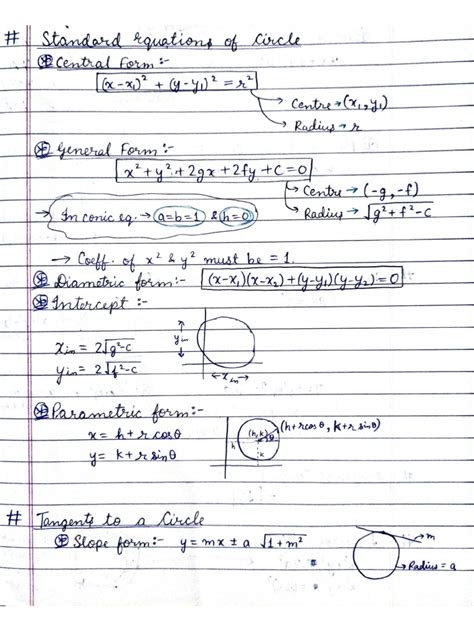 # Standard Equations of Circle
⊛ Central Form :-
(x-x₁)² + (y-y₁)² = r²
→ Centre → (x₁, y₁)
→ Radius → r
⊛ General Form :-
x² + y² + 2gx + 2fy + C = 0
→ Centre → (-g, -f)
→ In conic eq. → (a=b=1) & (h=0)
→ Radius → √g² + f² - C
→ Coeff. of x² & y² must be = 1.
⊛ Diametric form:- (x-x₁)(x-x₂) + (y-y₁)(y-y₂) = 0
⊛ Intercept :-
yin
xin = 2√g²-c
yin = 2√f²-c
xin
⊛ Parametric form:-
(h+rcosθ, k+rsinθ)
x = h + r cosθ
(h,k)
θ
h
y = k + r sinθ
k
# Tangents to a Circle
⊛ Slope form:- y = mx ± a √1+m²
m
Radius = a